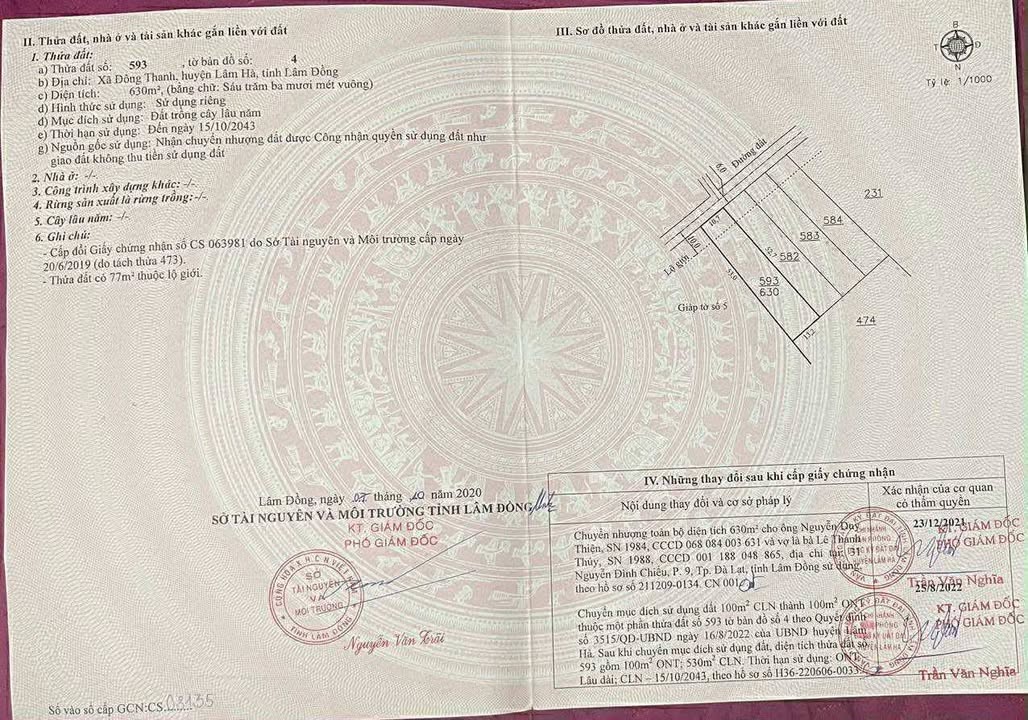 II. Thửa đất, nhà ở và tài sản khác gắn liền với đất
1. Thửa đất:
a) Thửa đất số: 593 , tờ bản đồ số: 4
b) Địa chỉ: Xã Đông Thanh, huyện Lâm Hà, tỉnh Lâm Đồng
c) Diện tích: 630m², (bằng chữ: Sáu trăm ba mươi mét vuông)
d) Hình thức sử dụng: Sử dụng riêng
đ) Mục đích sử dụng: Đất trồng cây lâu năm
e) Thời hạn sử dụng: Đến ngày 15/10/2043
g) Nguồn gốc sử dụng: Nhận chuyển nhượng đất được Công nhận quyền sử dụng đất như
giao đất không thu tiền sử dụng đất
2. Nhà ở: -/-
3. Công trình xây dựng khác: -/-
4. Rừng sản xuất là rừng trồng:-/-
5. Cây lâu năm: -/-
6. Ghi chú:
- Cấp đổi Giấy chứng nhận số CS 063981 do Sở Tài nguyên và Môi trường cấp ngày
20/6/2019 (do tách thửa 473).
- Thửa đất có 77m² thuộc lộ giới.
Lâm Đồng, ngày 07 tháng 10 năm 2020
SỞ TÀI NGUYÊN VÀ MÔI TRƯỜNG TỈNH LÂM ĐỒNG
KT. GIÁM ĐỐC
PHÓ GIÁM ĐỐC
CỘNG HÒA X.H.C.N VIỆT NAM
SỞ
TÀI NGUYÊN
VÀ
MÔI TRƯỜNG
TỈNH LÂM ĐỒNG
Nguyễn Văn Trãi
Số vào sổ cấp GCN:CS 08135
III. Sơ đồ thửa đất, nhà ở và tài sản khác gắn liền với đất
B
T Đ
N
Tỷ lệ: 1/1000
Đường đất
6.0
10.7
10.0
Lộ giới
53.0
52.5
593
630
582
583
584
231
Giáp tờ số 5
13.2
474
IV. Những thay đổi sau khi cấp giấy chứng nhận
Nội dung thay đổi và cơ sở pháp lý
Xác nhận của cơ quan
có thẩm quyền
Chuyển nhượng toàn bộ diện tích 630m² cho ông Nguyễn Duy
Thiện, SN 1984, CCCD 068 084 003 631 và vợ là bà Lê Thanh
Thủy, SN 1988, CCCD 001 188 048 865, địa chỉ tại:
Nguyễn Đình Chiểu, P. 9, Tp. Đà Lạt, tỉnh Lâm Đồng sử dụng,
theo hồ sơ số 211209-0134. CN 001
23/12/2021
KT. GIÁM ĐỐC
PHÓ GIÁM ĐỐC
Trần Văn Nghĩa
Chuyển mục đích sử dụng đất 100m² CLN thành 100m² ONT
thuộc một phần thửa đất số 593 tờ bản đồ số 4 theo Quyết định
số 3515/QD-UBND ngày 16/8/2022 của UBND huyện Lâm
Hà. Sau khi chuyển mục đích sử dụng đất, diện tích thửa đất số
593 gồm 100m² ONT; 530m² CLN. Thời hạn sử dụng: ONT:
Lâu dài; CLN – 15/10/2043, theo hồ sơ số H36-220606-0033
25/8/2022
KT. GIÁM ĐỐC
PHÓ GIÁM ĐỐC
Trần Văn Nghĩa